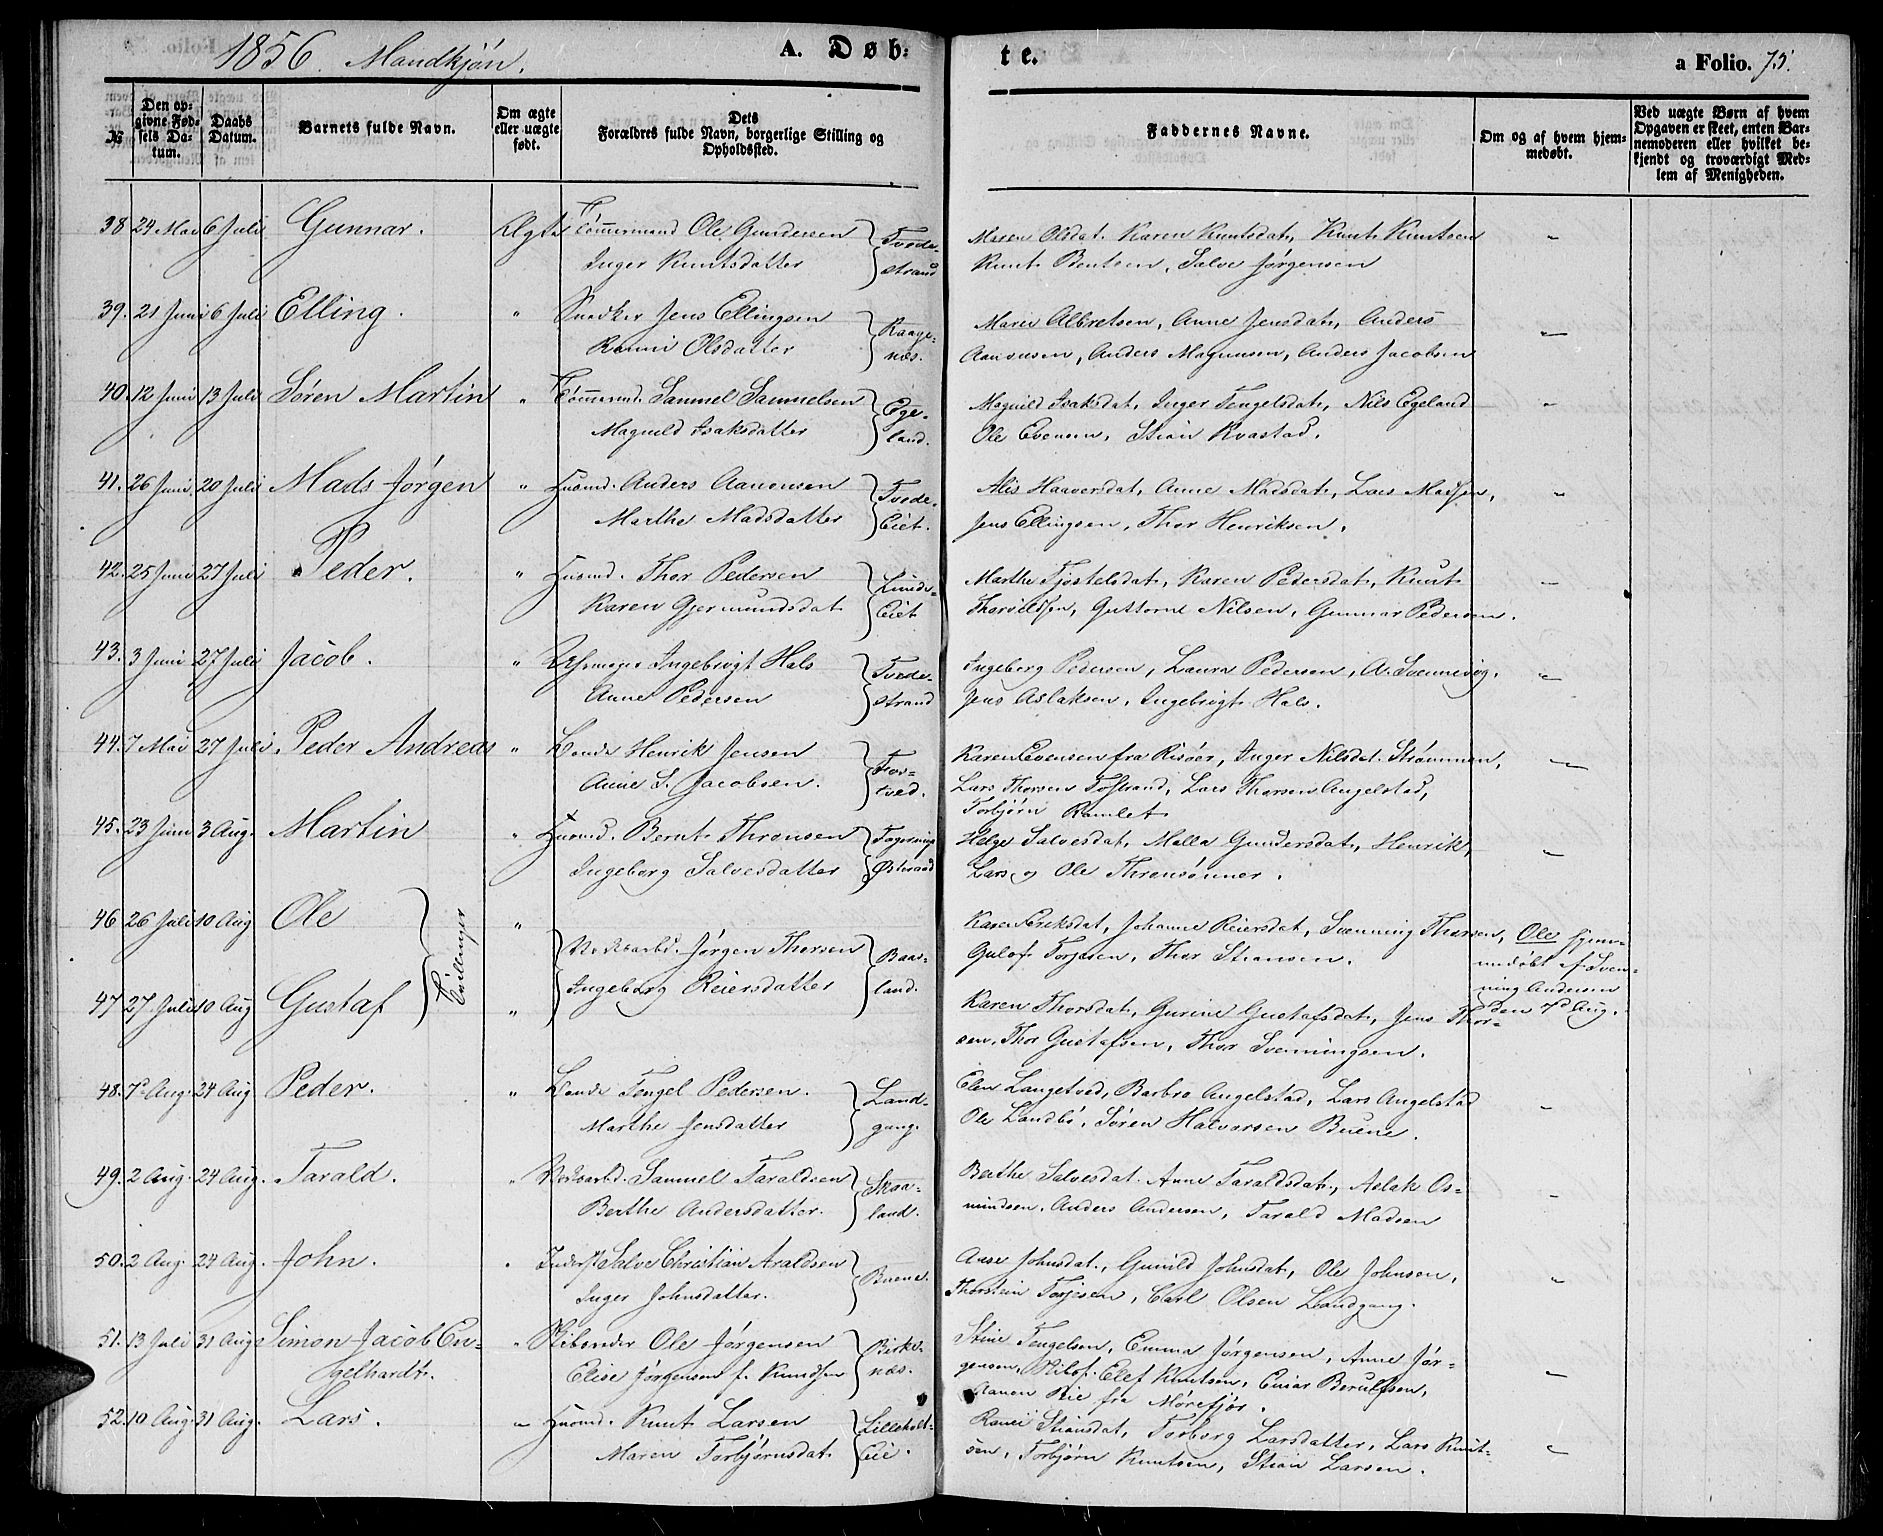 1856. Mandkjøn.
A. Døb-
te.
a Folio. 75.
№
Den op-
givne Fød-
sels Da-
tum.
Daabs
Datum.
Barnets fulde Navn.
Om ægte
eller uægte
født.
Dets
Forældres fulde Navn, borgerlige Stilling og
Opholdssted.
Faddernes Navne.
Om og af hvem hjem-
medøbt.
Ved uægte Børn af hvem
Opgaven er skeet, enten Bar-
nemoderen eller hvilket be-
kjendt og troværdigt Med-
lem af Menigheden.
38 24 Mai 6 Juli Gunnar. Ægte Tømmermand Ole Gundersen Tvede-
Inger Knutsdatter strand
Maren Olsdat. Karen Knutsdat, Knut Knutsen "
Knut Bentsen, Salve Jørgensen
39. 21 Juni 6 Juli Elling. " Snedker Jens Ellingsen Raage-
Ranni Olsdatter næs.
Maren Albretsen, Anne Jensdat, Anders "
Aanonsen, Anders Magnusen, Anders Jacobsen
40. 12 Juni 13 Juli Søren Martin " Tømmermd. Samuel Samuelsen Ege-
Magnild Isaksdatter land.
Magnild Isaksdat, Inger Tengelsdat, Nils Egeland "
Ole Evensen, Stian Kvastad.
41. 26 Juni 20 Juli Mads Jørgen " Husmd. Anders Aanonsen Tvede-
Marthe Madsdatter Eiet.
Alis Haaversdat, Anne Madsdat, Lars Madsen, "
Jens Ellingsen, Thor Henriksen.
42. 25 Juni 27 Juli Peder. " Husmd. Thor Pedersen Lunde-
Karen Gjermundsdat Eiet
Marthe Fjøstelsdat, Karen Pedersdat, Knut "
Thorvildsen, Guttorm Nilsen, Gunnar Pedersen.
43. 3 Juni 27 Juli Jacob. " Uhrmager Ingebrigt Hals Tvede-
Anne Pedersen strand
Ingeborg Pedersen, Laura Pedersen, A. Svennevig, "
Jens Aslaksen, Ingebrigt Hals.
44. 7 Mai 27 Juli. Peder Andreas " Bonde Henrik Jensen
Anne S. Jacobsen. tved.
Karen Evensen fra Risøer, Inger Nilsdat. Strømmen, "
Lars Thorsen Tostrand, Lars Thorsen Angelstad,
Torbjørn Ramlet
45. 23 Juni 3 Aug. Martin " Husmd. Bernt Thronsen
Ingeborg Salvesdatter
Helge Salvesdat, Malla Gundersdat, Henrik, "
Lars og Ole Thronsønner.
46 26 Juli 10 Aug Ole Tvillinger "
Jørgen Thorsen Baas-
Ingeborg Reiersdatter land.
Karen Eriksdat, Johanne Reiersdat, Svenning Thorsen, Ole hjem-
Gulof Torjesen, Thor Stiansen. medøbt af Sven-
ning Andersen
47 27 Juli 10 Aug Gustaf "
Karen Thorsdat, Gurine Gustafsdat, Jens Thor- den 7d Aug.
sen, Thor Gustafsen, Thor Svenningsen.
48. 7d Aug. 24 Aug Peder. " Bonde Tengel Pedersen. Land-
Marthe Jensdatter gang.
Elen Langetved, Barbro Angelstad, Lars Angelstad "
Ole Landbø, Søren Halvorsen Buene.
49. 2 Aug. 24 Aug. Tarald. " Samuel Taraldsen Skaa-
Berthe Andersdatter. land.
Berthe Salvesdat. Anne Taraldsdat, Aslak Os- "
mundsen, Anders Andersen, Tarald Madsen
50. 2 Aug. 24 Aug. John. " Inderst Salve Christian Araldsen Buene.
Inger Johnsdatter.
Anne Johnsdat., Gunild Johnsdat, Ole Johnsen, "
Thorstein Torjesen, Carl Olsen Landgang.
51. 13 Juli 31 Aug Simon Jacob En- " Skibsreder Ole Jørgensen Birke-
gelhardt. Elise Jørgensen f. Knudsen næs.
Stine Tengelsen, Emma Jørgensen, Anne Jør- "
gensen, Elef Knutsen, Einar Berulfsen,
Aanon Bie fra Mørefjær.
52. 10 Aug. 31 Aug. Lars. " Husmd. Knut Larsen Lilleholt-
Maren Torbjørnsdat Eie.
Ranei Stiansdat, Torborg Larsdatter, Lars Knut- "
sen, Torbjørn Knutsen, Stian Larsen.